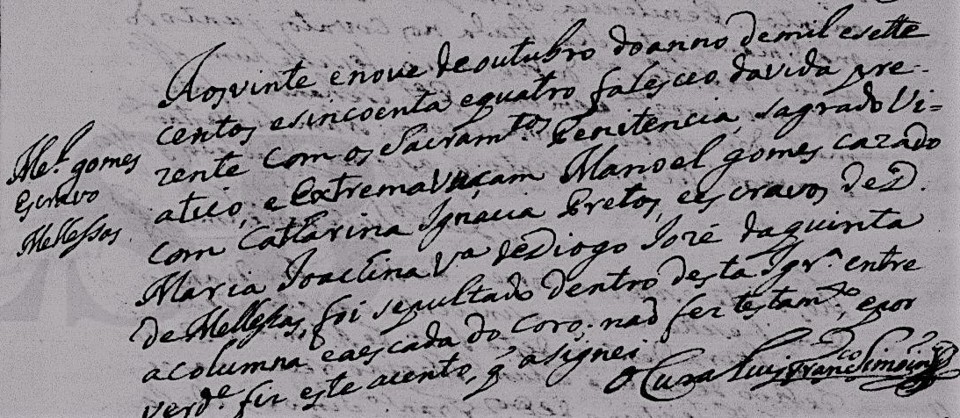 Mel. gomes
Escravo
Mellessas.
Aos vinte enove deoutubro doanno demil esette
centos esincoenta equatro falesceo davida pre-
zente com os Sacramtos Penitencia, sagrado Vi=
atico, e Extremavnçam Manoel gomes cazado
com Catharina Ignacia Pretos, eescravos deD.
Maria Joachina Va deDiogo Jozé daquinta
de Mellessas, foi sepultado dentro desta Igra. entre
acolumna eaescada do coro. naõ fes testamto, epor
verde. fis este acento, q̃ asignei
O Cura Luis Franco Simoins